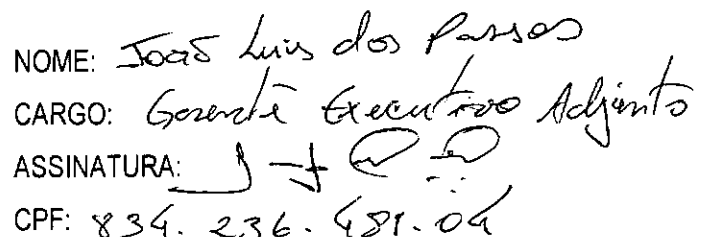 NOME: João Luis dos Passos
CARGO: Gerente Executivo Adjunto
ASSINATURA:
CPF: 834.236.481.04